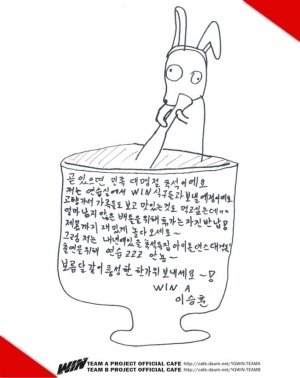 곧있으면 민족 대명절 추석이에요
저는 연습실에서 WIN 식구들과 보낼 예정이에요
고향가서 가족들도 보고 맛있는것도 먹고싶은데ㅠㅠ
얼마 남지않은 배틀을위해 휴가는 자진반납!
제몫까지 재밌게 놀다오세요~
그럼 저는 내년에있을 추석특집 아이돌댄스대격돌
출연을위해 연습222 안뇽~
보름달같이 풍성한 한가위 보내세요~!
WIN A
이승훈
WIN TEAM A PROJECT OFFICIAL CAFE http://cafe.daum.net/YGWIN-TEAMA
TEAM B PROJECT OFFICIAL CAFE http://cafe.daum.net/YGWIN-TEAMB